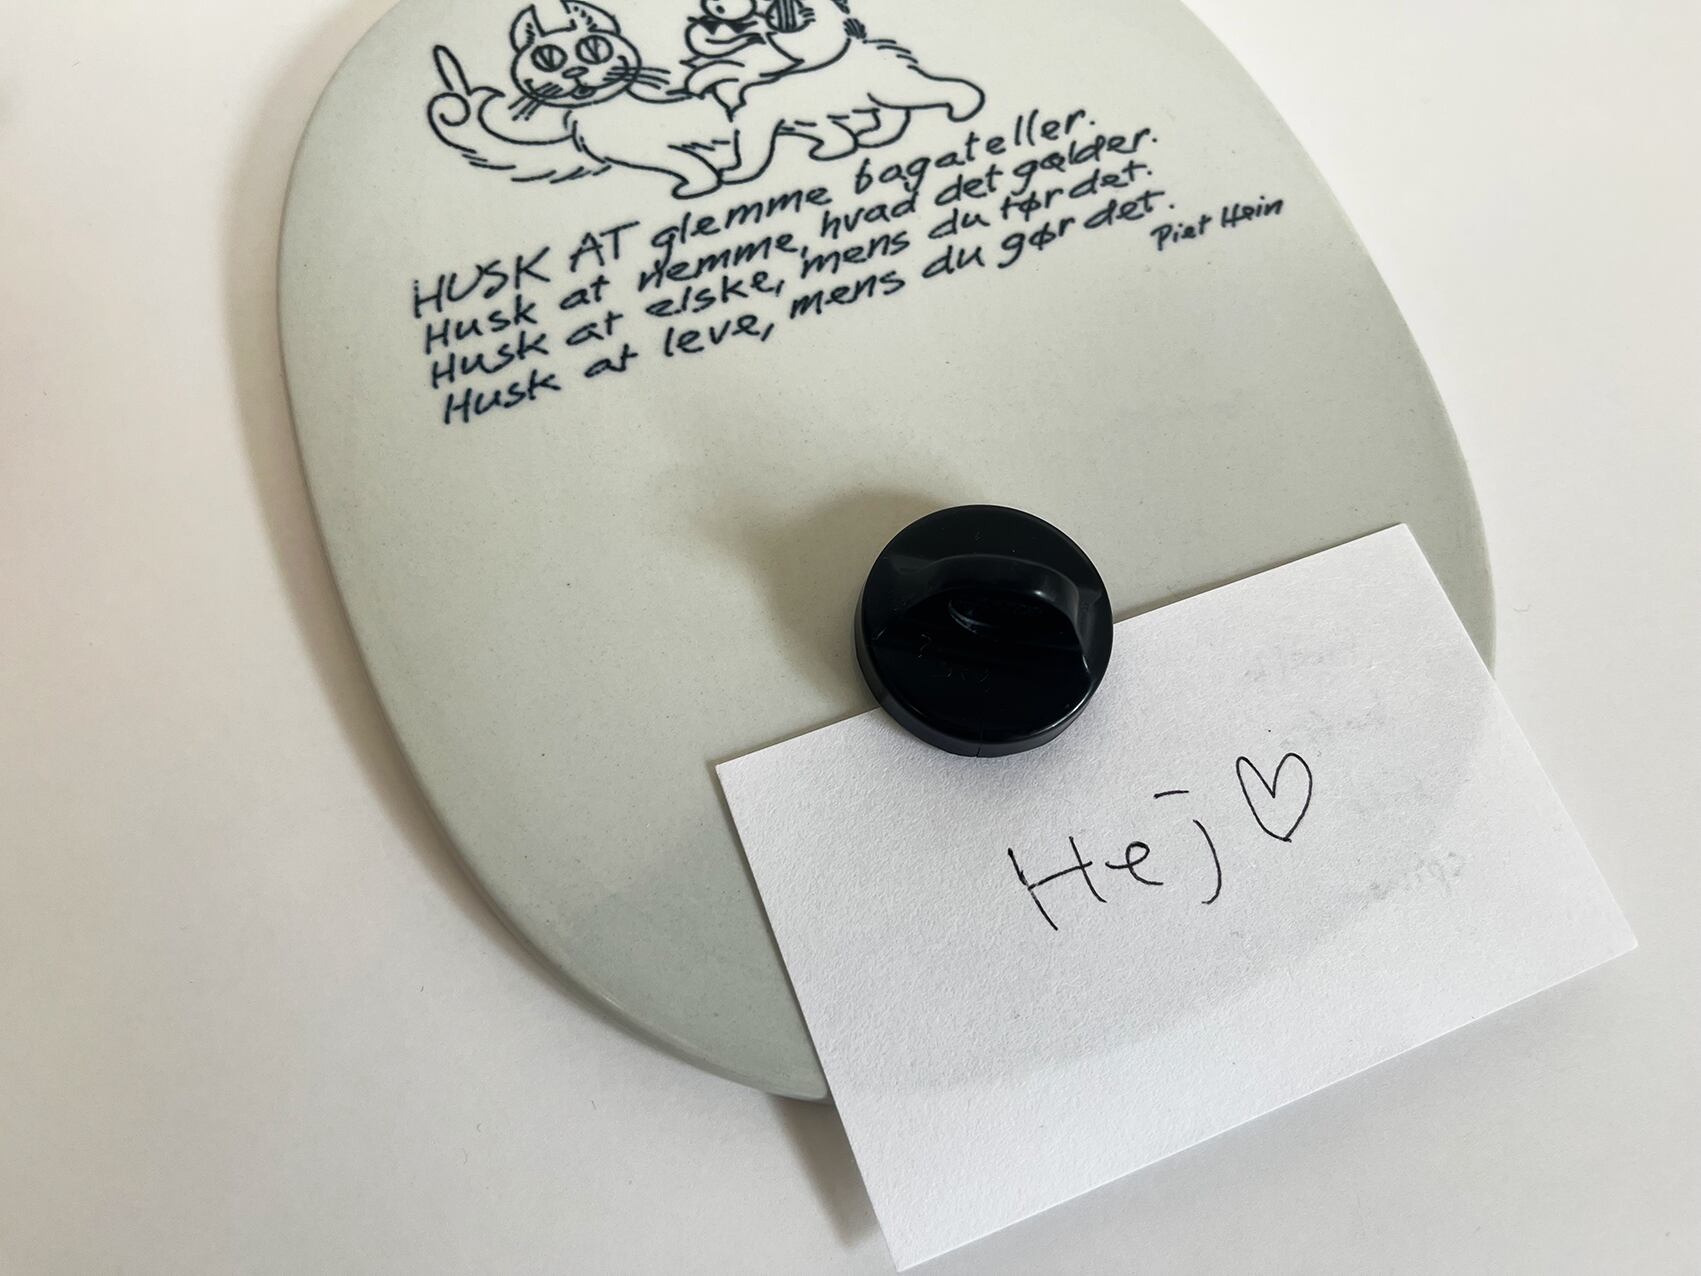 HUSK AT glemme bagateller.
Husk at nemme, hvad det gælder.
Husk at elske, mens du tør det.
Husk at leve, mens du gør det.
Piet Hein
Hej♡